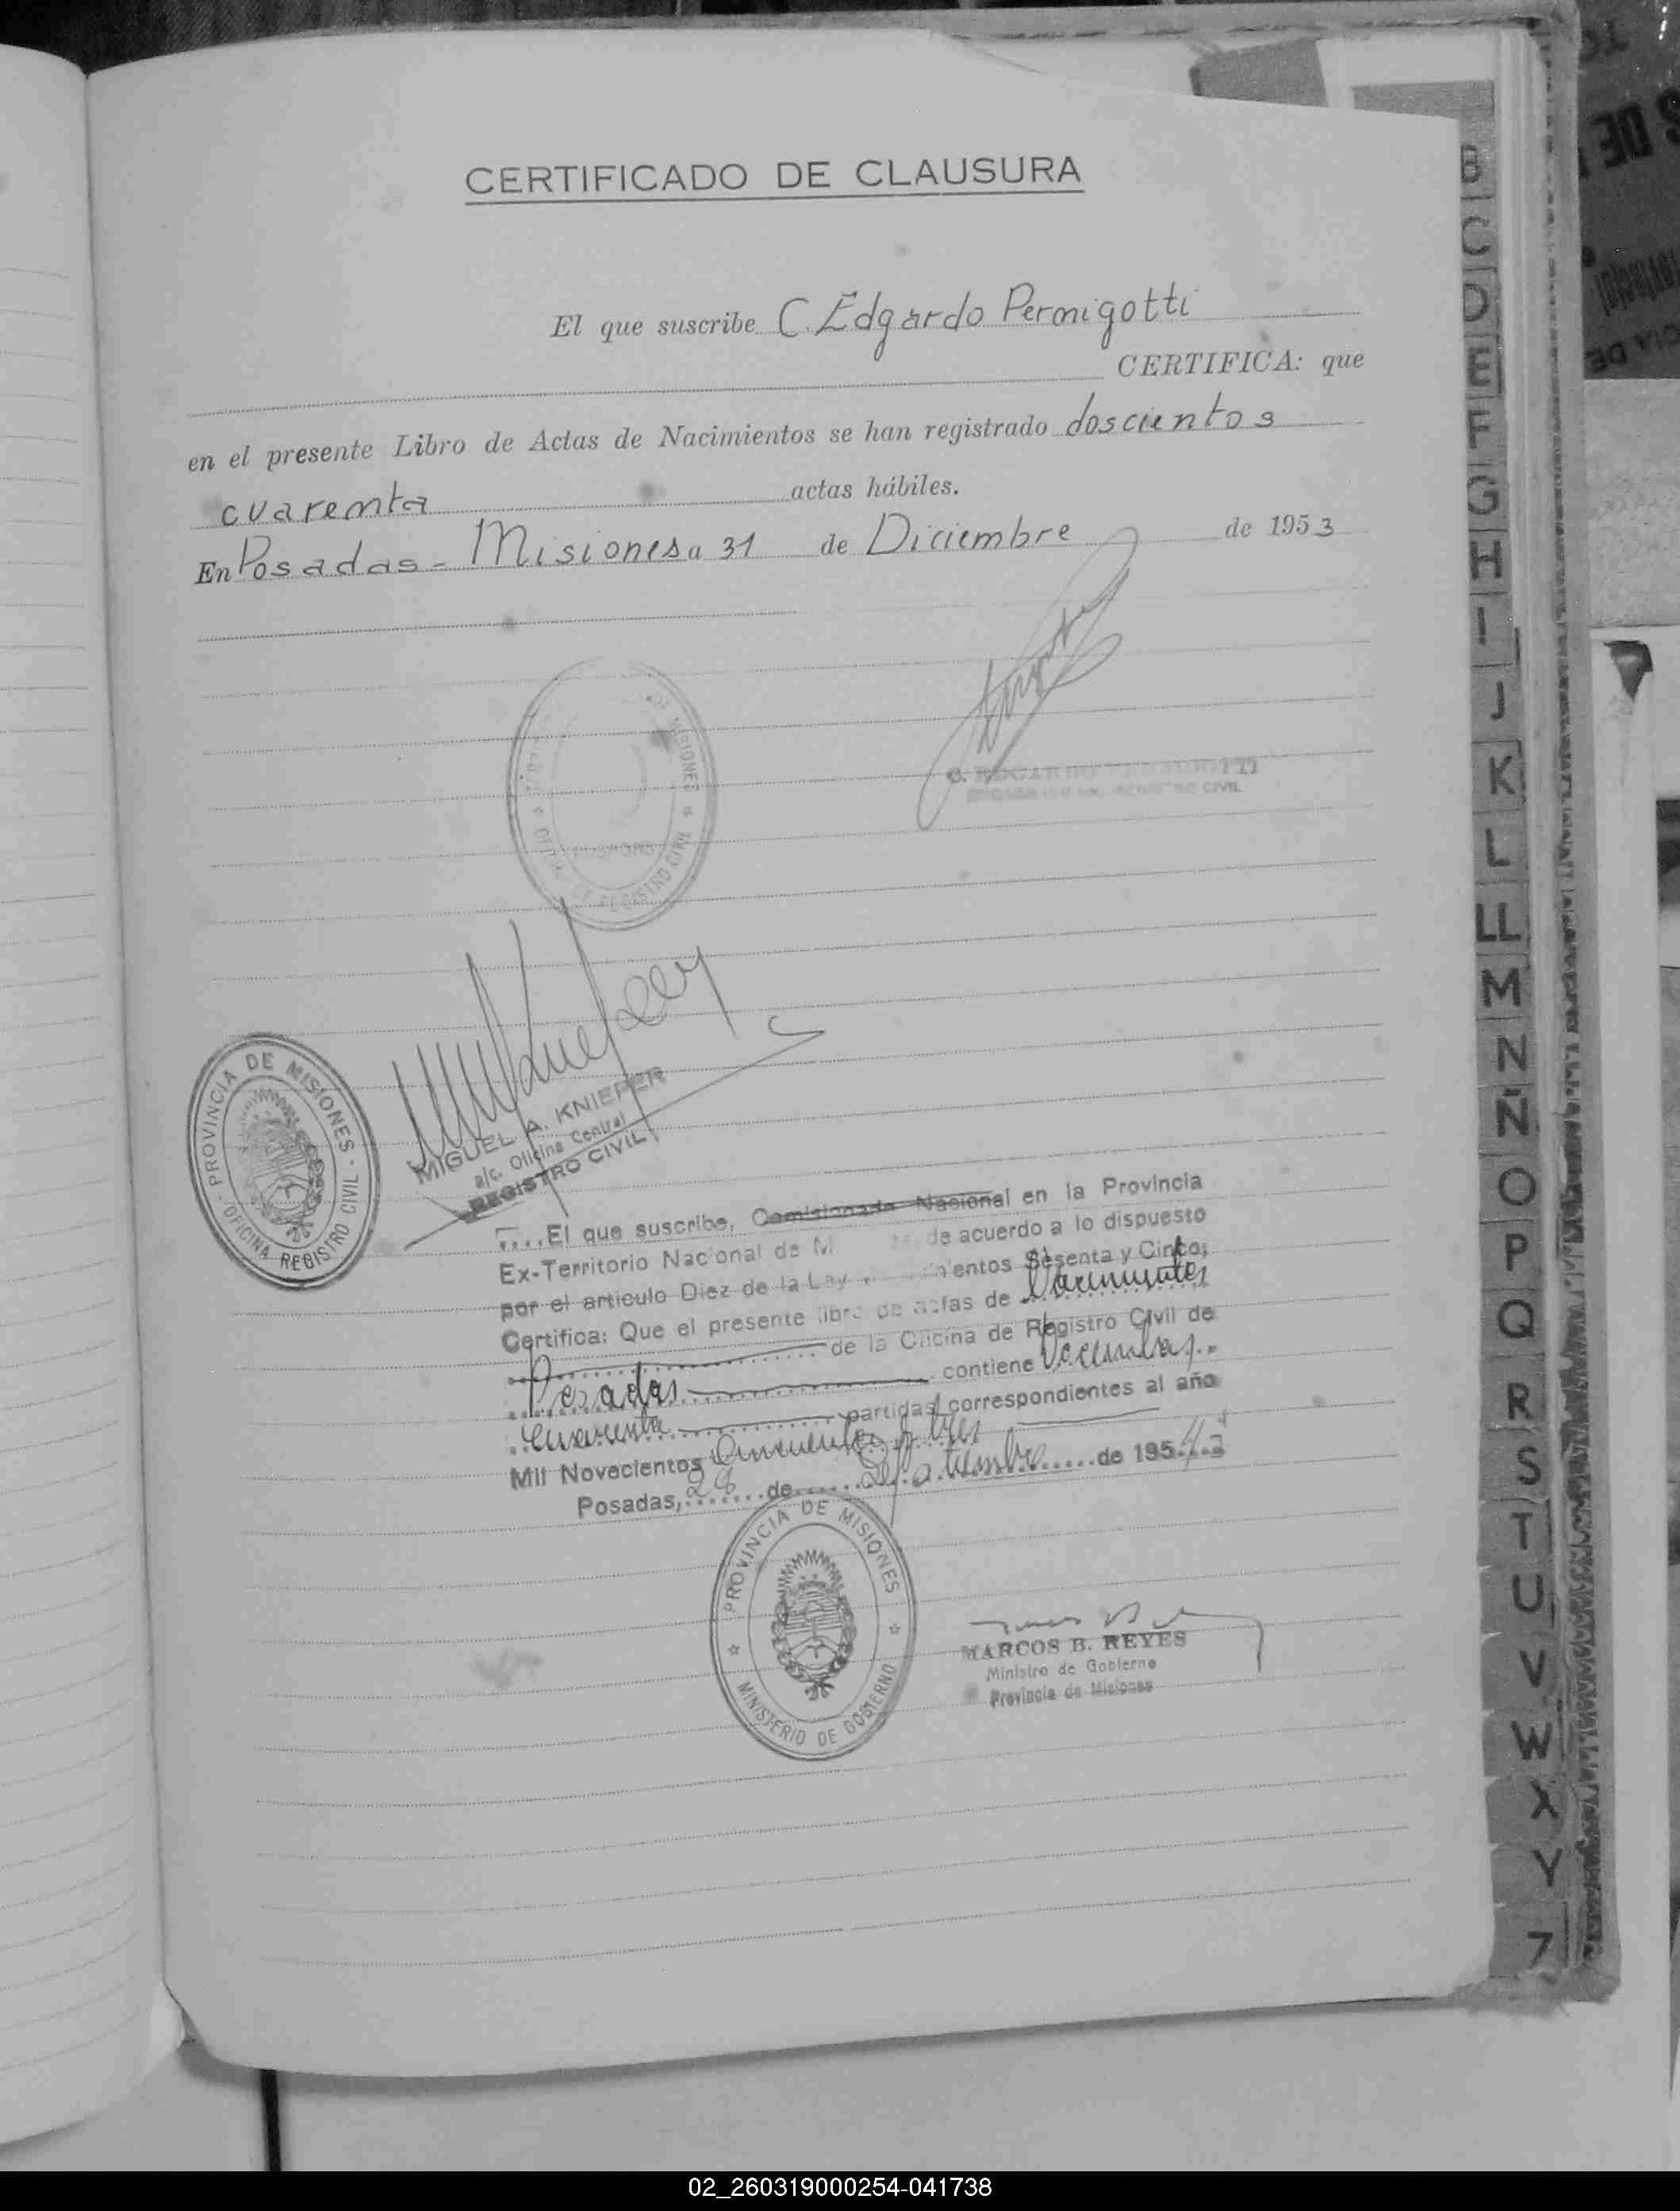 CERTIFICADO DE CLAUSURA
El que suscribe C. Edgardo Permigotti
CERTIFICA: que
en el presente Libro de Actas de Nacimientos se han registrado doscientos
cuarenta actas hábiles.
En Posadas - Misiones a 31 de Diciembre de 1953
DE MISIONES
REGISTRO CIVIL
C. EDGARDO
REGISTRO CIVIL
PROVINCIA DE MISIONES
OFICINA REGISTRO CIVIL
MIGUEL A. KNIEPER
a/c. Oficina Central
REGISTRO CIVIL
....El que suscribe, Comisionado Nacional en la Provincia
Ex-Territorio Nacional de M de acuerdo a lo dispuesto
por el artículo Diez de la Ley entos Sesenta y Cinco;
Certifica: Que el presente libro de actas de Nacimientos
de la Oficina de Registro Civil de
Posadas contiene Doscientas
cuarenta partidas correspondientes al año
Mil Novecientos Cincuenta y tres
Posadas, 28 de Septiembre de 195
PROVINCIA DE MISIONES
MINISTERIO DE GOBIERNO
MARCOS B. REYES
Ministro de Gobierno
Provincia de Misiones
B
C
D
E
F
G
H
I
J
K
L
LL
M
N
Ñ
O
P
Q
R
S
T
U
V
W
X
Y
Z
02_260319000254-041738